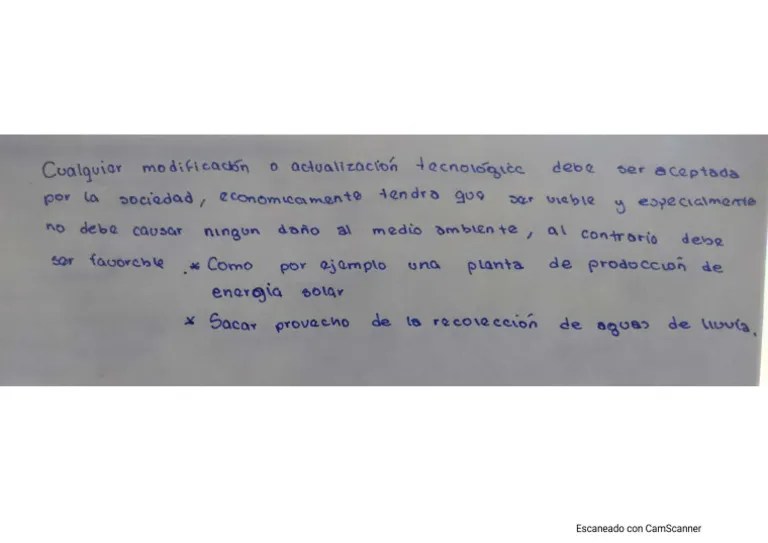 Cualquier modificación o actualización tecnológica debe ser aceptada
por la sociedad, economicamente tendra que ser viable y especialmente
no debe causar ningun daño al medio ambiente, al contrario debe
ser favorable. * Como por ejemplo una planta de producción de
energía solar
* Sacar provecho de la recolección de aguas de lluvía.
Escaneado con CamScanner